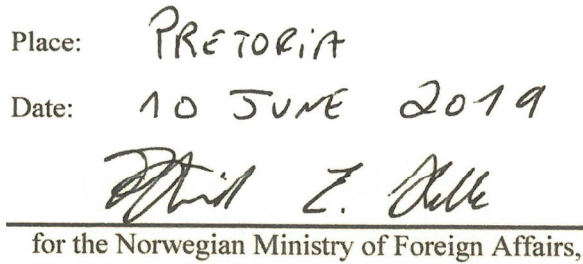 Place: PRETORIA
Date: 10 JUNE 2019
E.
for the Norwegian Ministry of Foreign Affairs,